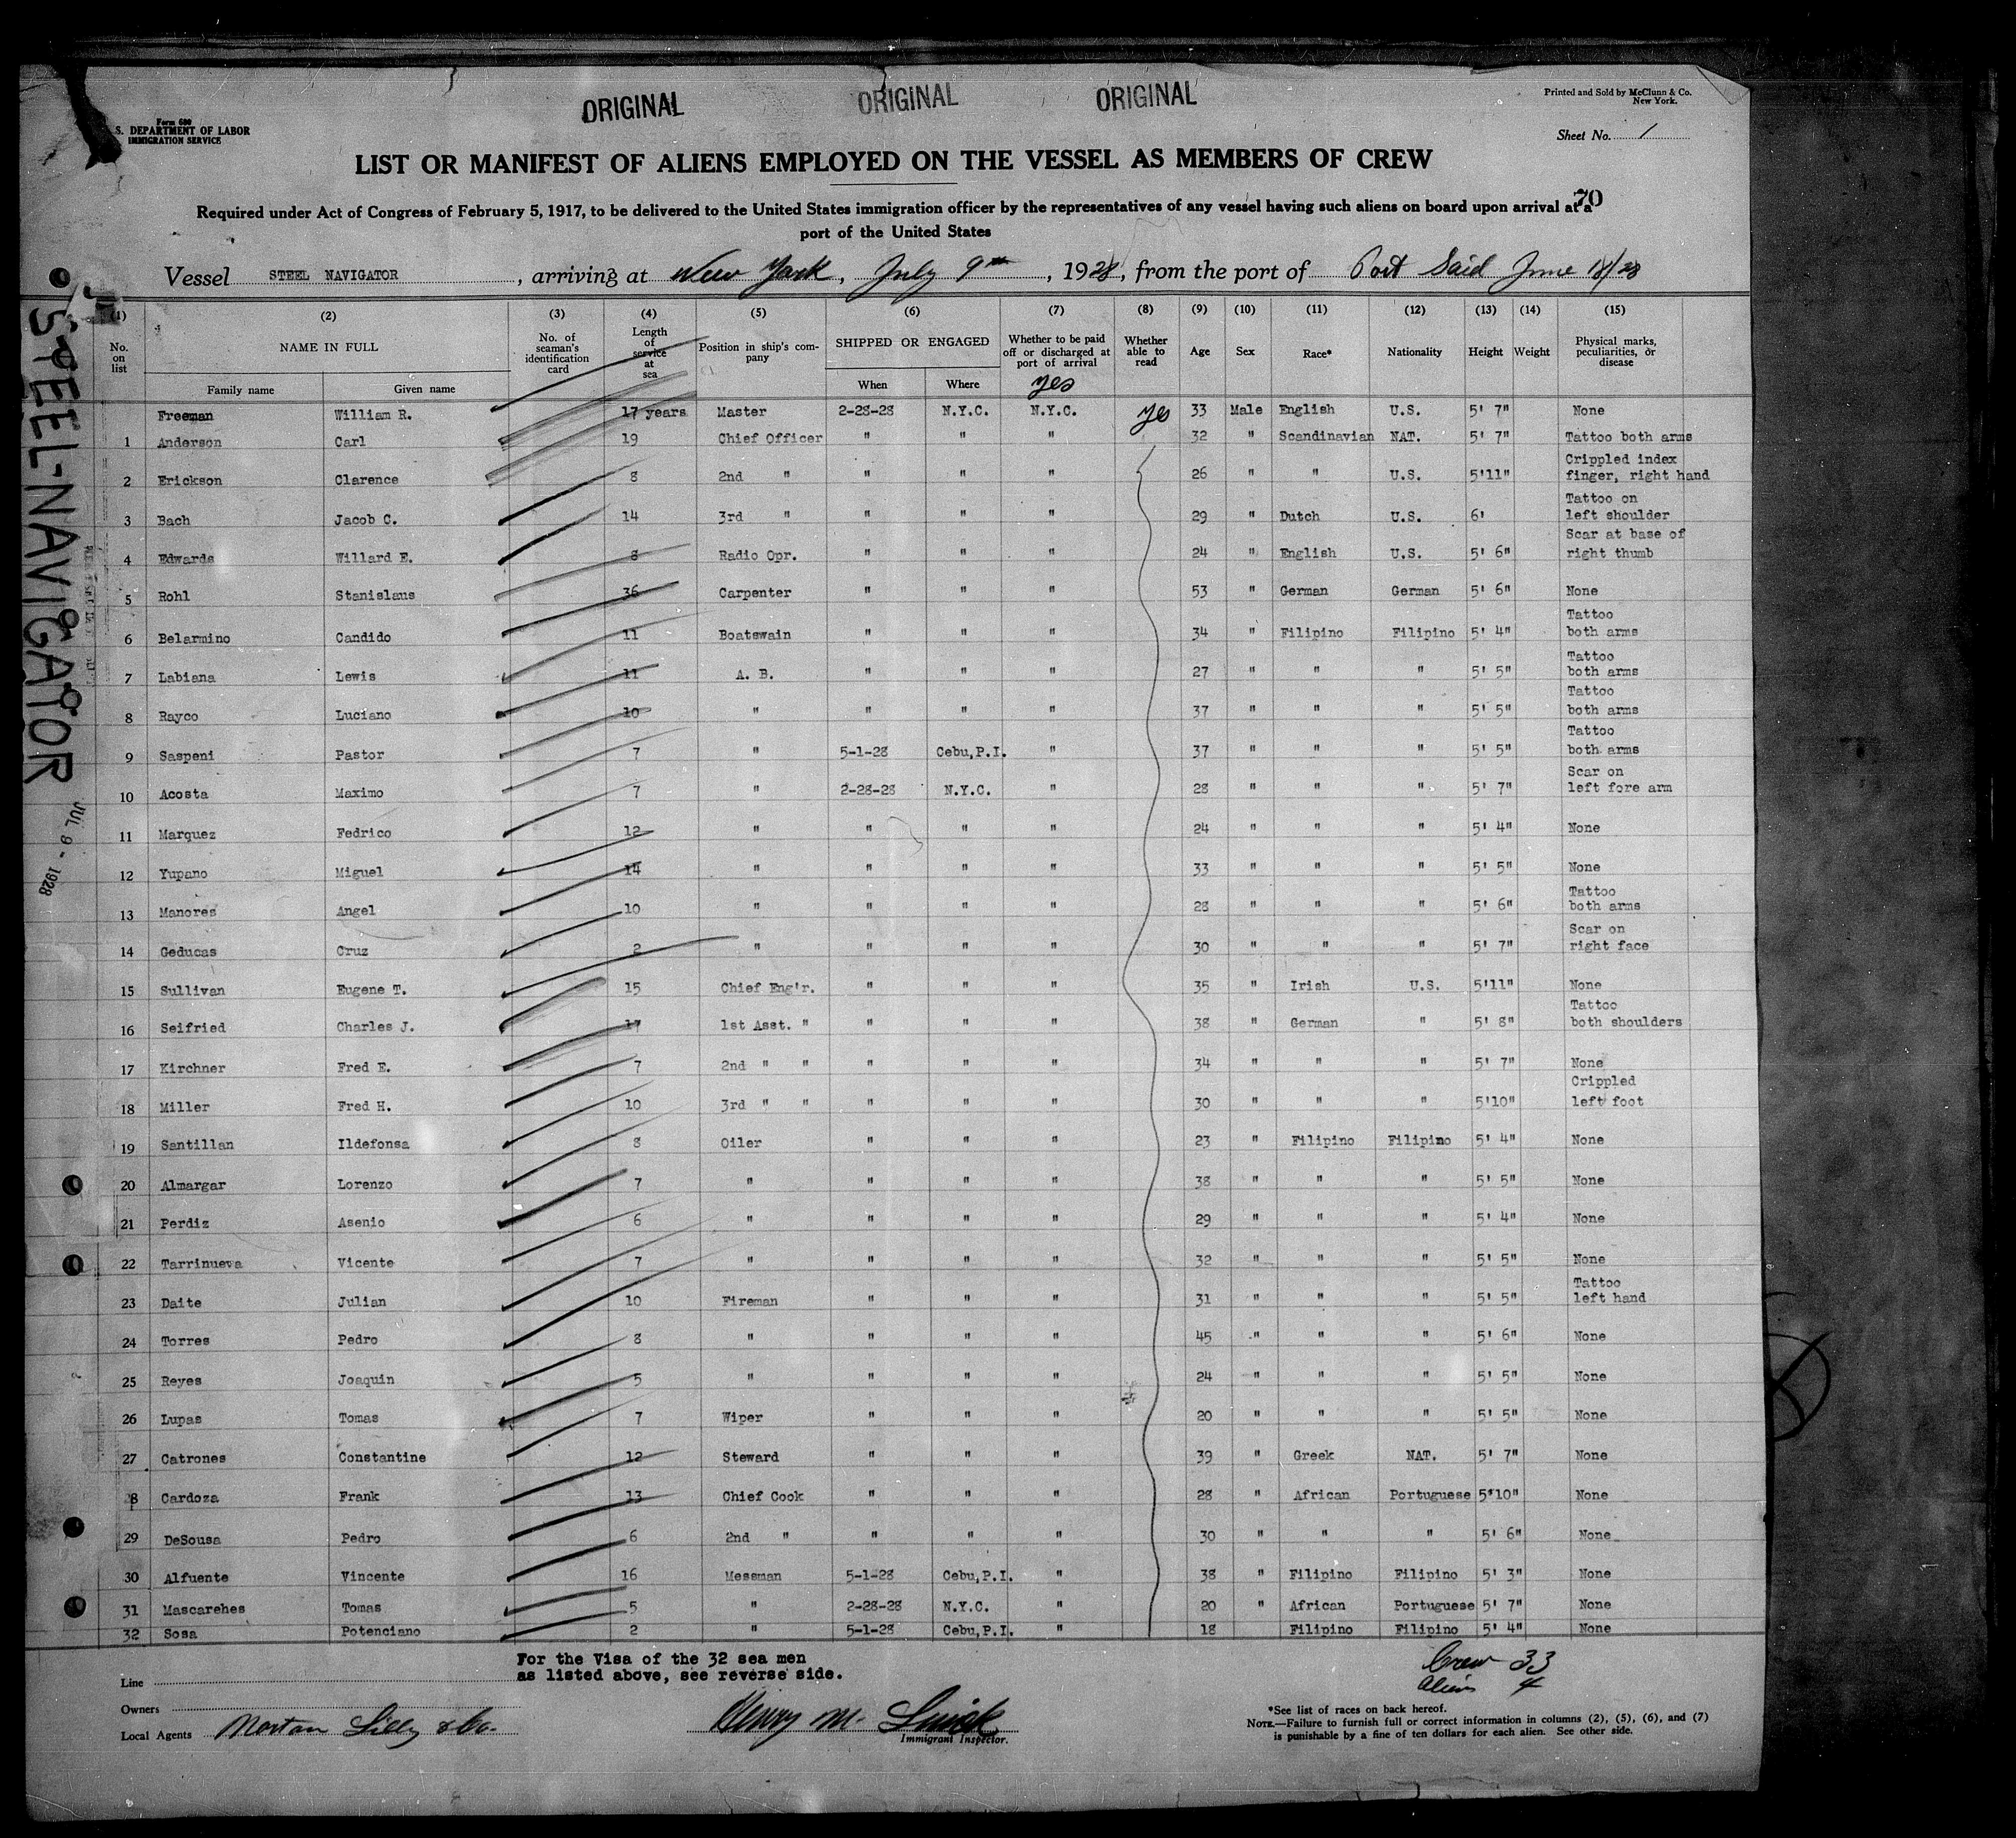 ORIGINAL ORIGINAL ORIGINAL
Printed and Sold by McClunn & Co.
New York.
Form 680
S. DEPARTMENT OF LABOR
IMMIGRATION SERVICE
Sheet No. 1
LIST OR MANIFEST OF ALIENS EMPLOYED ON THE VESSEL AS MEMBERS OF CREW
70
Required under Act of Congress of February 5, 1917, to be delivered to the United States immigration officer by the representatives of any vessel having such aliens on board upon arrival at a
port of the United States
Vessel STEEL NAVIGATOR, arriving at New York, July 9th, 1928, from the port of Port Said June 18/28
STEEL-NAVIGATOR
JUL 9 - 1928
(1) (2) (3) (4) (5) (6) (7) (8) (9) (10) (11) (12) (13) (14) (15)
No. on list NAME IN FULL No. of seaman's identification card Length of service at sea Position in ship's company SHIPPED OR ENGAGED Whether to be paid off or discharged at port of arrival Whether able to read Age Sex Race* Nationality Height Weight Physical marks, peculiarities, or disease
Family name Given name When Where yes
Freeman William R. 17 years Master 2-28-28 N.Y.C. N.Y.C. yes 33 Male English U.S. 5' 7" None
1 Anderson Carl 19 Chief Officer " " " 32 " Scandinavian NAT. 5' 7" Tattoo both arms
2 Erickson Clarence 8 2nd " " " " 26 " " U.S. 5'11" Crippled index finger, right hand
3 Bach Jacob C. 14 3rd " " " " 29 " Dutch U.S. 6' Tattoo on left shoulder
4 Edwards Willard E. 8 Radio Opr. " " " 24 " English U.S. 5' 6" Scar at base of right thumb
5 Rohl Stanislaus 36 Carpenter " " " 53 " German German 5' 6" None
6 Belarmino Candido 11 Boatswain " " " 34 " Filipino Filipino 5' 4" Tattoo both arms
7 Labiana Lewis 11 A. B. " " " 27 " " " 5' 5" Tattoo both arms
8 Rayco Luciano 10 " " " " 37 " " " 5' 5" Tattoo both arms
9 Saspeni Pastor 7 " 5-1-28 Cebu,P.I. " 37 " " " 5' 5" Tattoo both arms
10 Acosta Maximo 7 " 2-28-28 N.Y.C. " 28 " " " 5' 7" Scar on left fore arm
11 Marquez Fedrico 12 " " " " 24 " " " 5' 4" None
12 Yupano Miguel 14 " " " " 33 " " " 5' 5" None
13 Manores Angel 10 " " " " 28 " " " 5' 6" Tattoo both arms
14 Geducas Cruz 2 " " " " 30 " " " 5' 7" Scar on right face
15 Sullivan Eugene T. 15 Chief Eng'r. " " " 35 " Irish U.S. 5'11" None
16 Seifried Charles J. 17 1st Asst. " " " " 38 " German " 5' 8" Tattoo both shoulders
17 Kirchner Fred E. 7 2nd " " " " " 34 " " " 5' 7" None
18 Miller Fred H. 10 3rd " " " " " 30 " " " 5'10" Crippled left foot
19 Santillan Ildefonsa 8 Oiler " " " 23 " Filipino Filipino 5' 4" None
20 Almargar Lorenzo 7 " " " " 38 " " " 5' 5" None
21 Perdiz Asenio 6 " " " " 29 " " " 5' 4" None
22 Tarrinueva Vicente 7 " " " " 32 " " " 5' 5" None
23 Daite Julian 10 Fireman " " " 31 " " " 5' 5" Tattoo left hand
24 Torres Pedro 8 " " " " 45 " " " 5' 6" None
25 Reyes Joaquin 5 " " " " 24 " " " 5' 5" None
26 Lupas Tomas 7 Wiper " " " 20 " " " 5' 5" None
27 Catrones Constantine 12 Steward " " " 39 " Greek NAT. 5' 7" None
28 Cardoza Frank 13 Chief Cook " " " 28 " African Portuguese 5'10" None
29 DeSousa Pedro 6 2nd " " " " 30 " " " 5' 6" None
30 Alfuente Vincente 16 Messman 5-1-28 Cebu,P.I. " 38 " Filipino Filipino 5' 3" None
31 Mascarehes Tomas 5 " 2-28-28 N.Y.C. " 20 " African Portuguese 5' 7" None
32 Sosa Potenciano 2 " 5-1-28 Cebu,P.I. " 18 Filipino Filipino 5' 4" None
For the Visa of the 32 sea men
as listed above, see reverse side.
Crew 33
Aliens 4
Line
Owners
Local Agents Norton Lilly & Co.
Henry M.
Immigrant Inspector.
*See list of races on back hereof.
NOTE.—Failure to furnish full or correct information in columns (2), (5), (6), and (7)
is punishable by a fine of ten dollars for each alien. See other side.